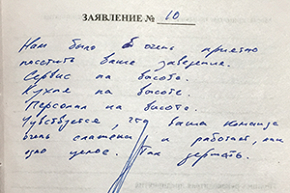 ЗАЯВЛЕНИЕ № 10
Нам было очень приятно
посетить ваше заведение.
Сервис на высоте.
Кухня на высоте.
Персонал на высоте.
Чувствуется, что ваша команда
очень слаженная и работает, как
одно целое. Так держать.